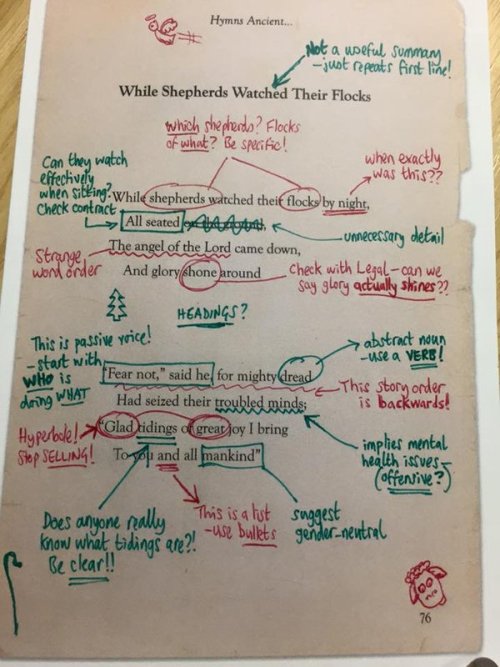 Hymns Ancient...
Not a useful summary
- just repeats first line!
While Shepherds Watched Their Flocks
which shepherds? Flocks
of what? Be specific!
when exactly
was this??
Can they watch
effectively
when sitting?
Check contract
While shepherds watched their flocks by night,
All seated
unnecessary detail
The angel of the Lord came down,
Strange
word order
And glory shone around
Check with Legal - can we
say glory actually shines??
HEADINGS?
This is passive voice!
- start with
WHO is
doing WHAT
abstract noun
- use a VERB!
"Fear not," said he, for mighty dread
This story order
is backwards!
Had seized their troubled minds;
"Glad tidings of great joy I bring
Hyperbole!
Stop SELLING!
implies mental
health issues -
(offensive?)
To you and all mankind"
Does anyone really
know what tidings are?!
Be clear!!
This is a list
- use bullets
suggest
gender-neutral
76